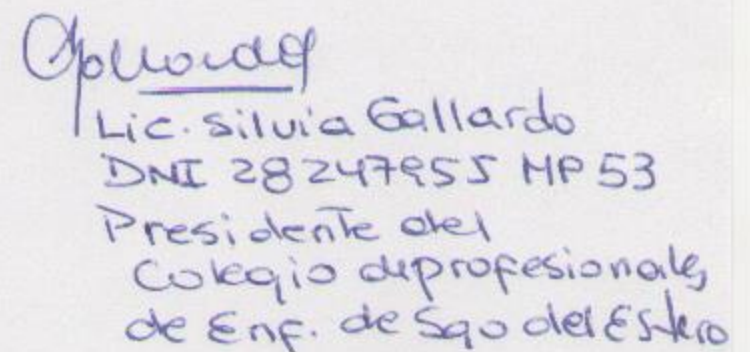 Lic. Silvia Gallardo
DNI 28247955 MP 53
Presidente del
Colegio de profesionales
de Enf. de Sgo del Estero